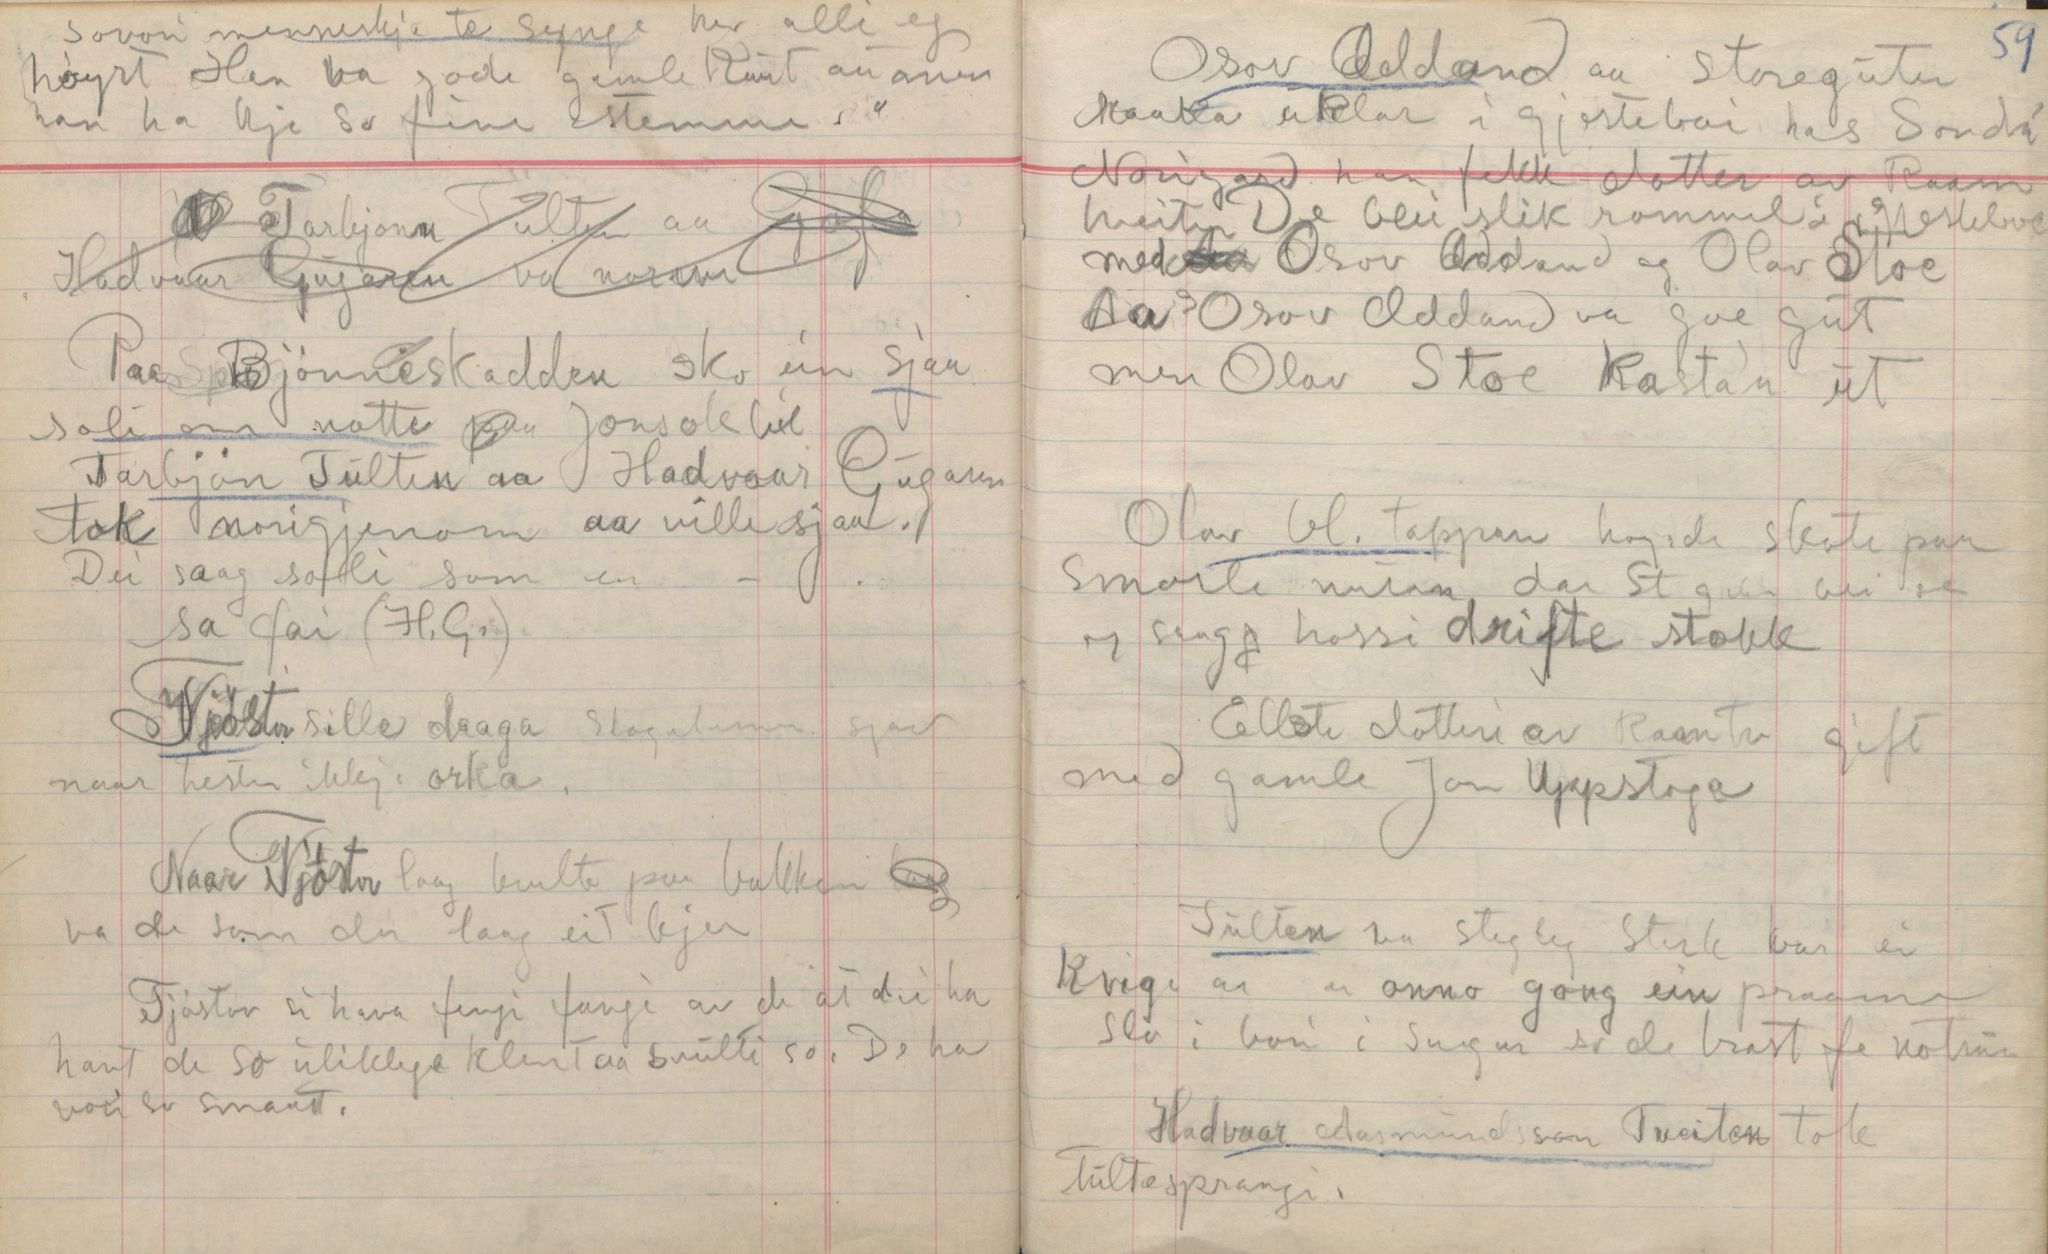 sovori menneskje te synge her alli eg
høyrt Han va gode gamle Knut au men
han ha kje so fine stemme."
Tarbjønn Tulten aa
Hadvaar Gugaren va
Paa Bjønneskadden sko ein sjaa
soli om notte paa Jonsokbil
Tarbjøn Tulten aa Hadvaar Gugaren
tok norigjenom aa ville sjaa.
Dei saag soli som en - .
sa fai (H.G.)
Tjøstov sille draga sjøav
naar hesten ikkje orka.
Naar Tjøstov laag kvilte paa bakken
va de som der laag eit kjer
Tjøstov si hava fengi av de at dei ha
hant de so uliklege klent aa svulti so. De ha
vori so smaatt.
59
Osov Oddand aa Storeguten
i gjesteboi has Sondr
Norigard han fekk dotter av Raam
tveiten De blei slik rammel i gjestebode
med Osov Oddand og Olav Stoe
Aa Osov Oddand va goe gut
men Olav Stoe kasta'n ut
Olav Vl. tappen høyrde skote paa
Smorle nutan dar St
og saag hossi drifte stokk
Elste dotteri av Raamtv gift
med gamle Jon Uppstoga
Tulten va stygleg sterk bar ei
Kvige aa onno gong ein praam
slo i bori i sugur so de brast fe
Hadvaar Aasmundsson Tveiten tok
Tultesprangi.